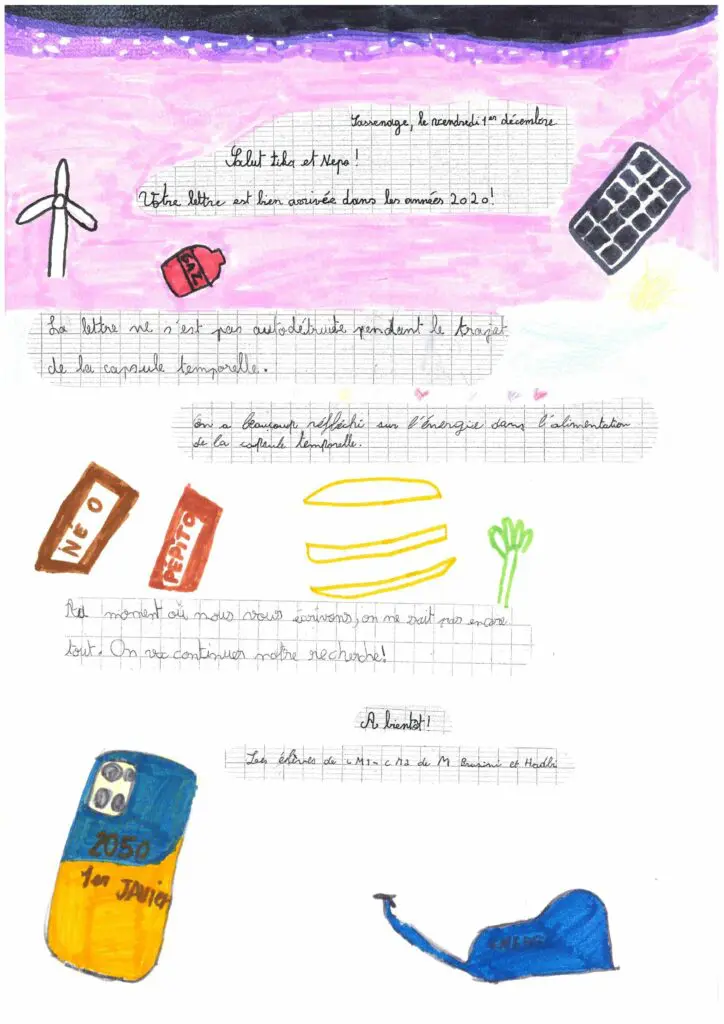 Sassenage, le vendredi 1er décembre
Salut Tika et Nepo !
Votre lettre est bien arrivée dans les années 2020 !
GAZ
La lettre ne s'est pas autodétruite pendant le trajet
de la capsule temporelle.
On a beaucoup réfléchi sur l'énergie dans l'alimentation
de la capsule temporelle.
NEO
PÉPITO
Au moment où nous vous écrivons, on ne sait pas encore
tout. On va continuer notre recherche !
A bientôt !
Les élèves de CM1-CM2 de M et Hadbi
2050
1er JAVIER